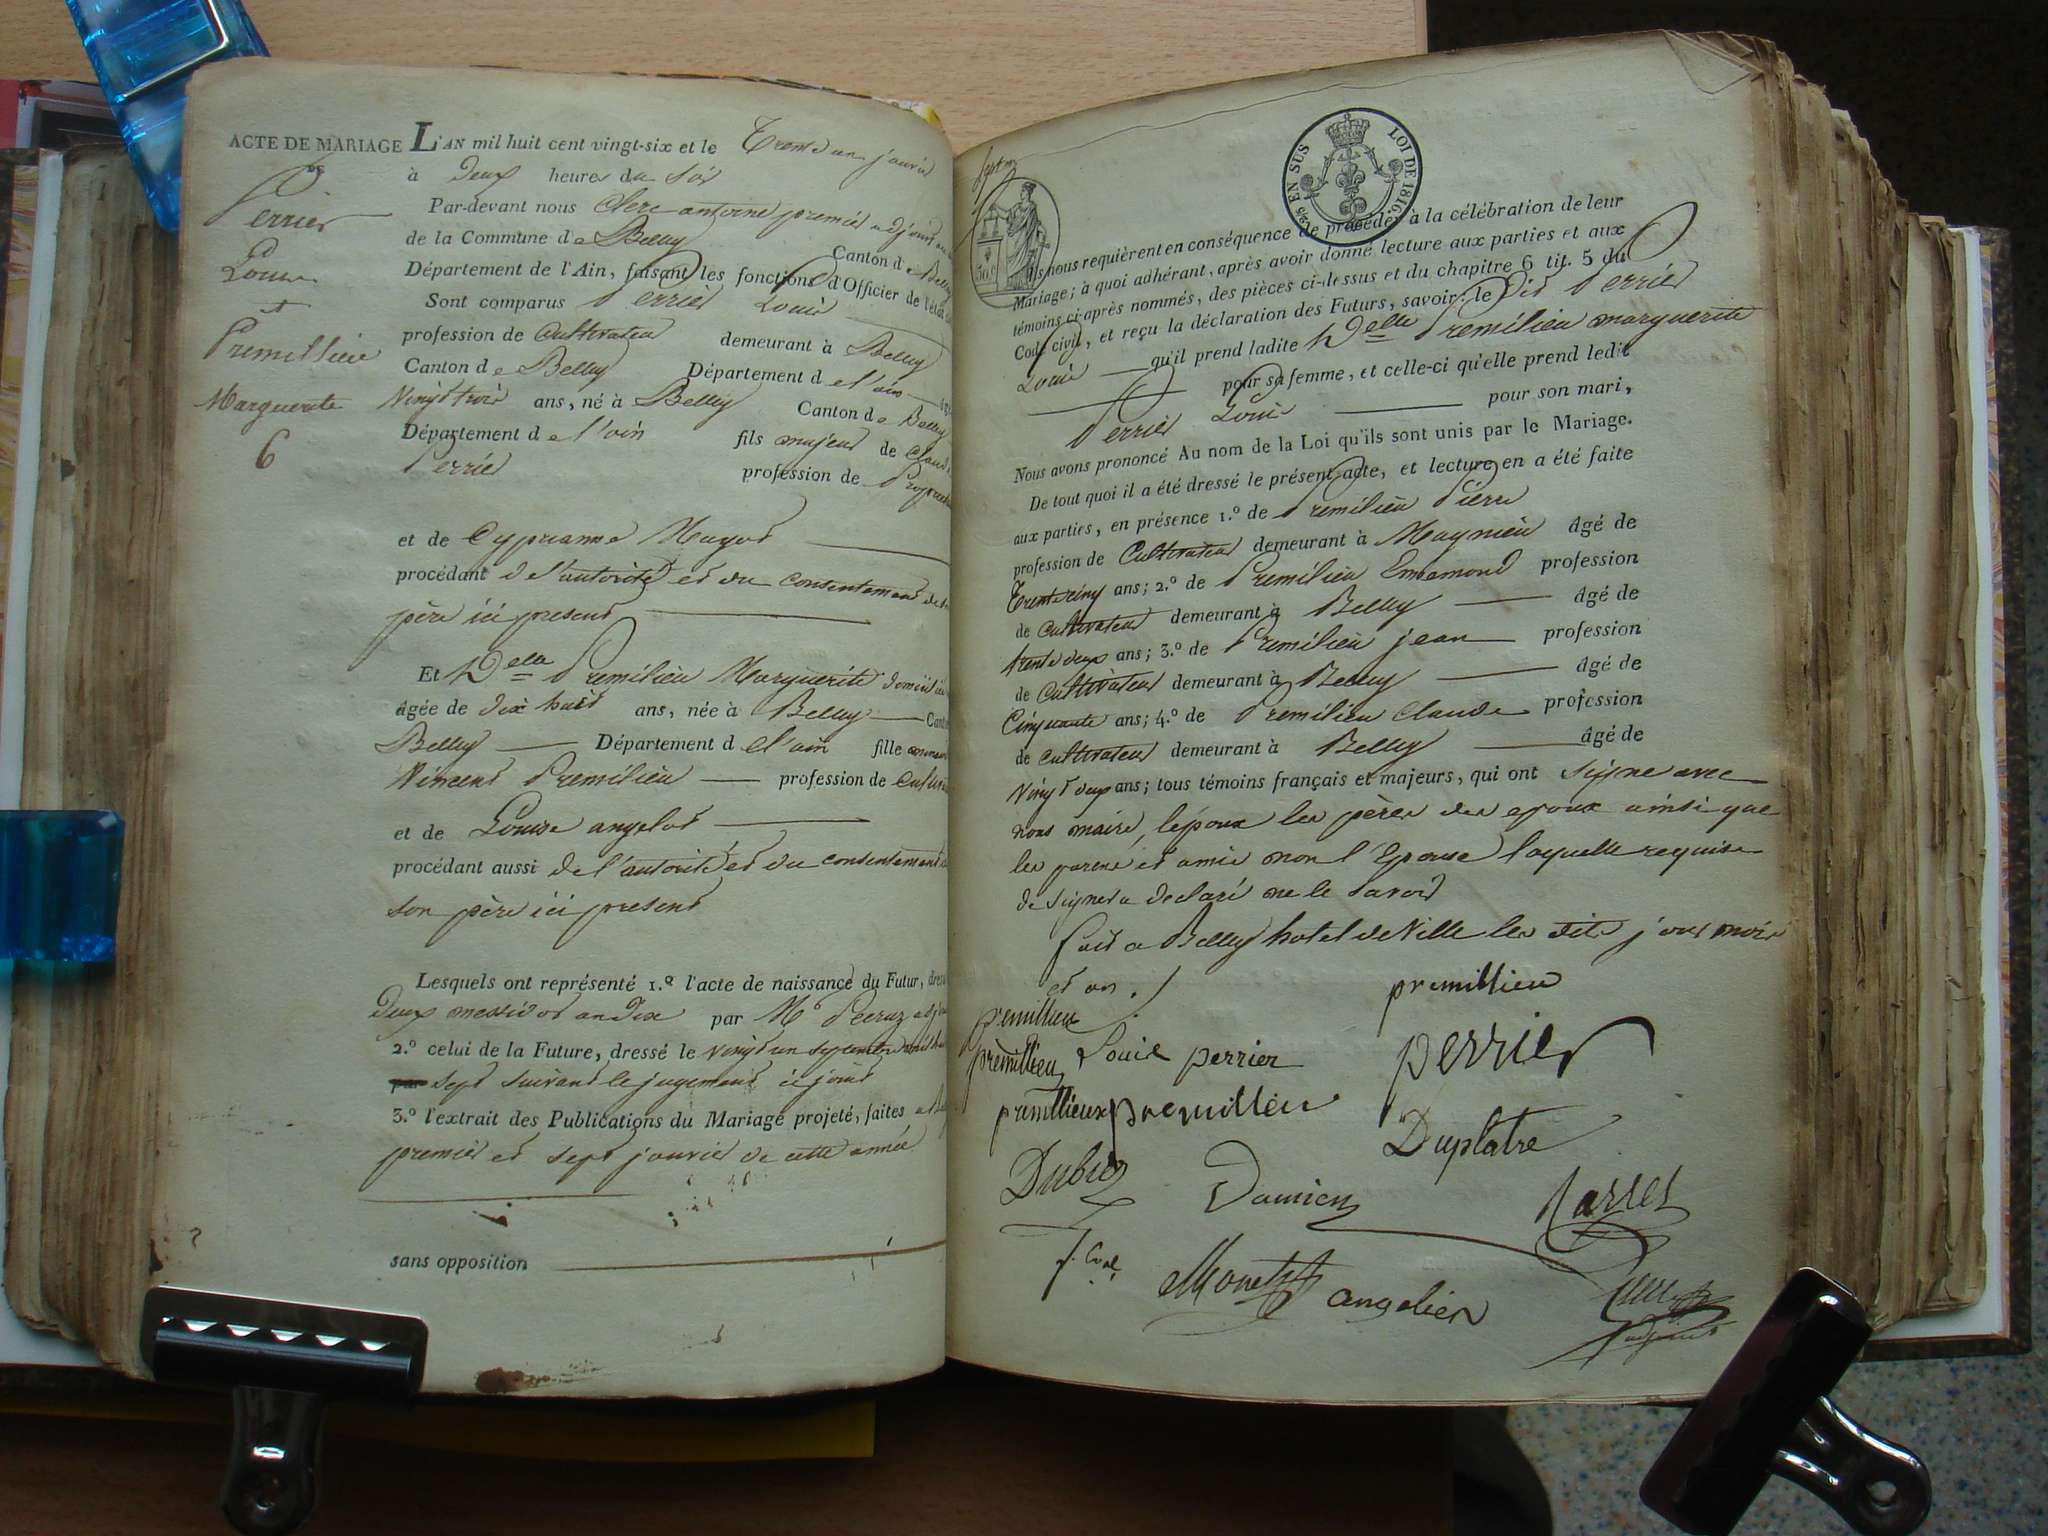 ACTE DE MARIAGE
De
Perrier
Louis
et
Premillieu
Marguerite
6
L'AN mil huit cent vingt-six et le Trente un janvier
à Deux heures du Soir
Par-devant nous Clerc antoine premier adjoint
de la Commune de Belley Canton de Belley
Département de l'Ain, faisant les fonctions d'Officier de l'état
Sont comparus Perrier Louis
profession de Cultivateur demeurant à Belley
Canton de Belley Département de l'ain
Vingt trois ans, né à Belley Canton de Belley
Département de l'ain fils majeur de Claude
Perrier profession de
et de Cyprianne
procédant de l'autorité et du consentement de
père ici present
Et Delle Premilieu Marguerite
âgée de dix huit ans, née à Belley
Belley Département de l'ain fille
Vincent Premilieu profession de
et de Louise angelot
procédant aussi de l'autorité et du consentement
son père ici present
Lesquels ont représenté 1.º l'acte de naissance du Futur,
Deux messidor an Dix par Mr
2.º celui de la Future, dressé le vingt un septembre
sept suivant le jugement ci joint
3.º l'extrait des Publications du Mariage projeté, faites
premier et sept janvier de cette année
sans opposition
EN SUS LOI DE 1816.
Ils nous requièrent en conséquence de procéder à la célébration de leur
Mariage; à quoi adhérant, après avoir donné lecture aux parties et aux
témoins ci-après nommés, des pièces ci-dessus et du chapitre 6 tit. 5 du
Code civil, et reçu la déclaration des Futurs, savoir: le Dit Perrier
Louis qu'il prend ladite Delle Premilieu marguerite
pour sa femme, et celle-ci qu'elle prend ledit
Perrier Louis pour son mari,
Nous avons prononcé Au nom de la Loi qu'ils sont unis par le Mariage.
De tout quoi il a été dressé le présent acte, et lecture en a été faite
aux parties, en présence 1.º de Premilieu Pierre
profession de Cultivateur demeurant à Magnieu âgé de
Trente cinq ans; 2.º de Premilieu Ennemond profession
de Cultivateur demeurant à Belley âgé de
trente deux ans; 3.º de Premilieu jean profession
de Cultivateur demeurant à Belley âgé de
Cinquante ans; 4.º de Premilieu Claude profession
de cultivateur demeurant à Belley âgé de
Vingt deux ans; tous témoins français et majeurs, qui ont signe avec
nous maire, l'epoux les pères des epoux ainsi que
les parens et amis non l'Epouse laquelle requise
de signer a declaré ne le savoir
fait a Belley hotel de Ville les dits jour mois
et an.
premillieu
premillieu
premillieu Louis perrier perrier
premillieux premillieu
Duplatre
Dubiez Damien
Monet angelier